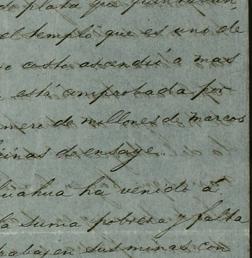 de plata que
el templo que es uno de
costo ascendió a mas
está comprobada por
numero de millones de marcos
oficinas de ensaye.
Chihuahua ha venido á
la suma pobreza y falta
trabajan sus minas con